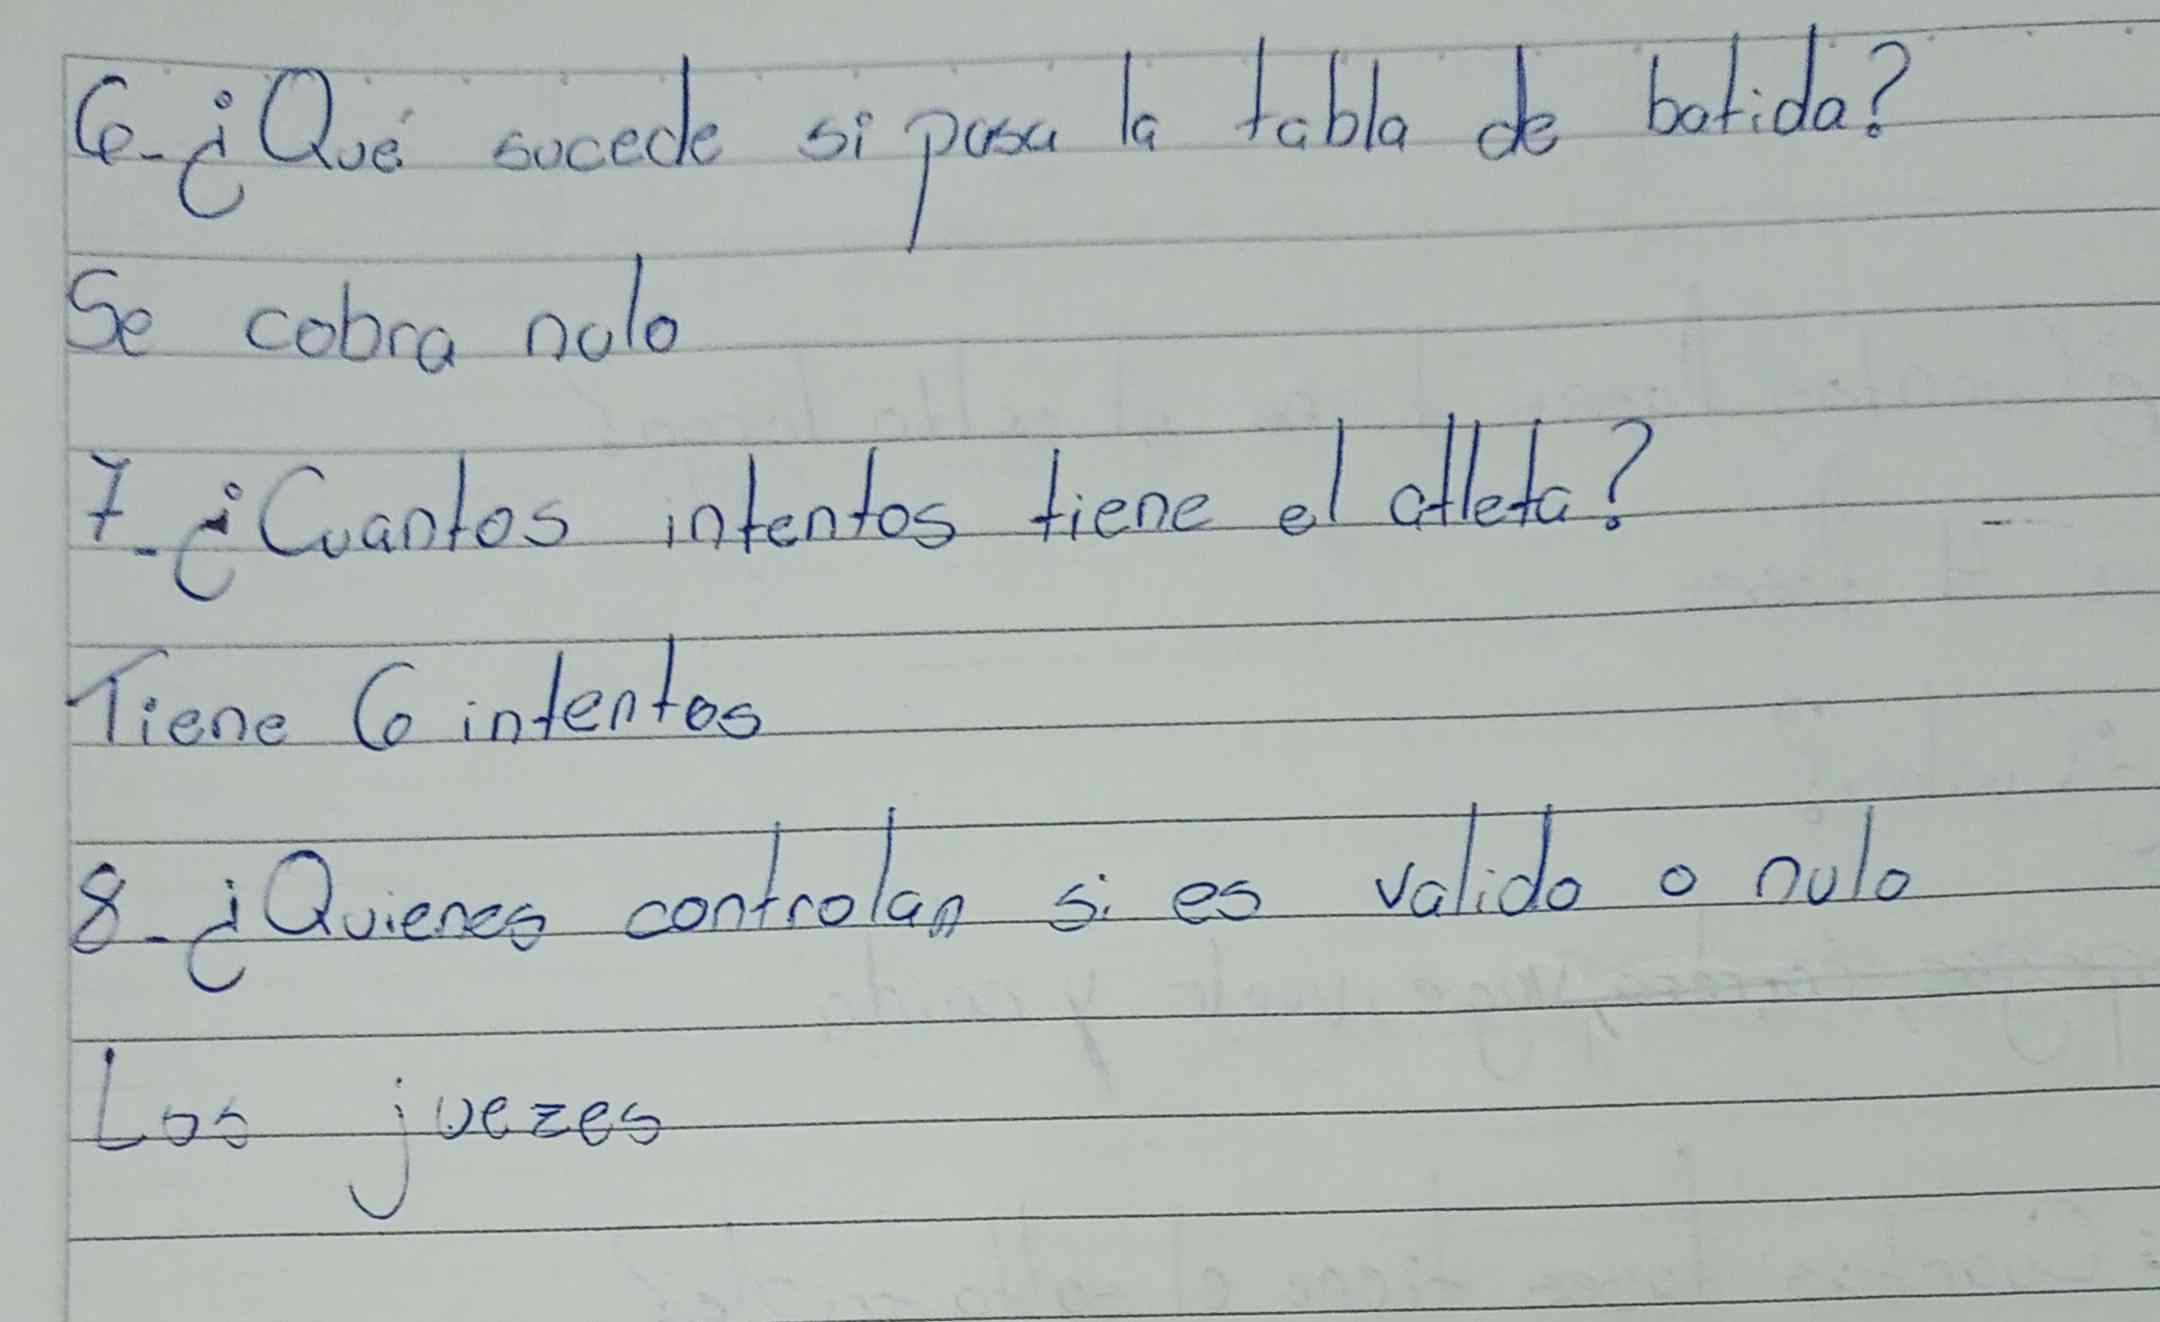 6-¿Qué sucede si pasa la tabla de batida?
Se cobra nulo
7-¿Cuantos intentos tiene el atleta?
Tiene 6 intentos
8-¿Quienes controlan si es valido o nulo
Los juezes